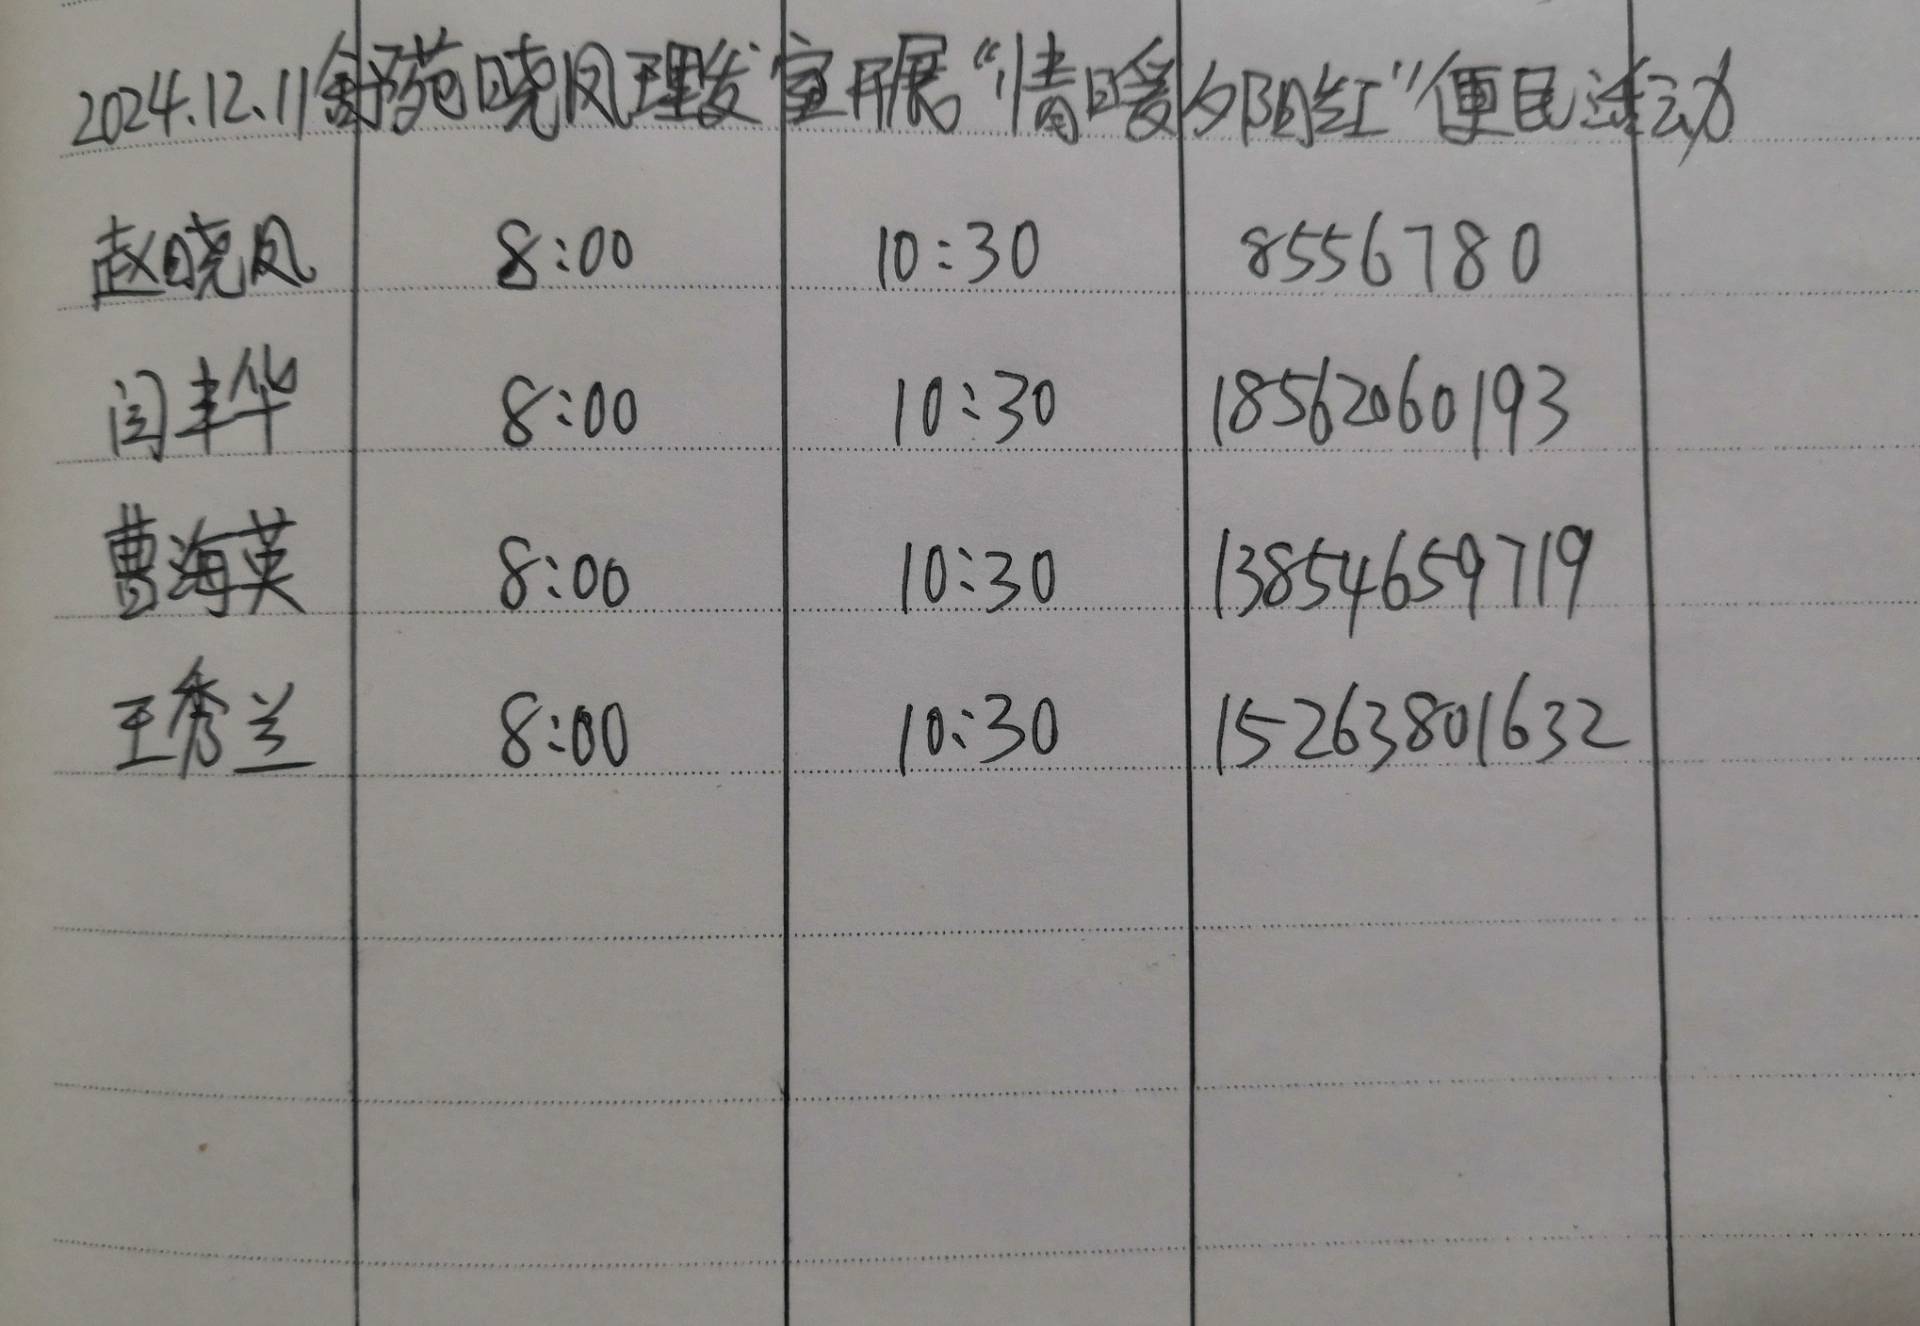 2024.12.11舒苑晓凤理发室开展“情暖夕阳红”便民活动
赵晓凤 8:00 10:30 8556780
闫丰华 8:00 10:30 18562060193
曹海英 8:00 10:30 13854659719
王秀兰 8:00 10:30 15263801632